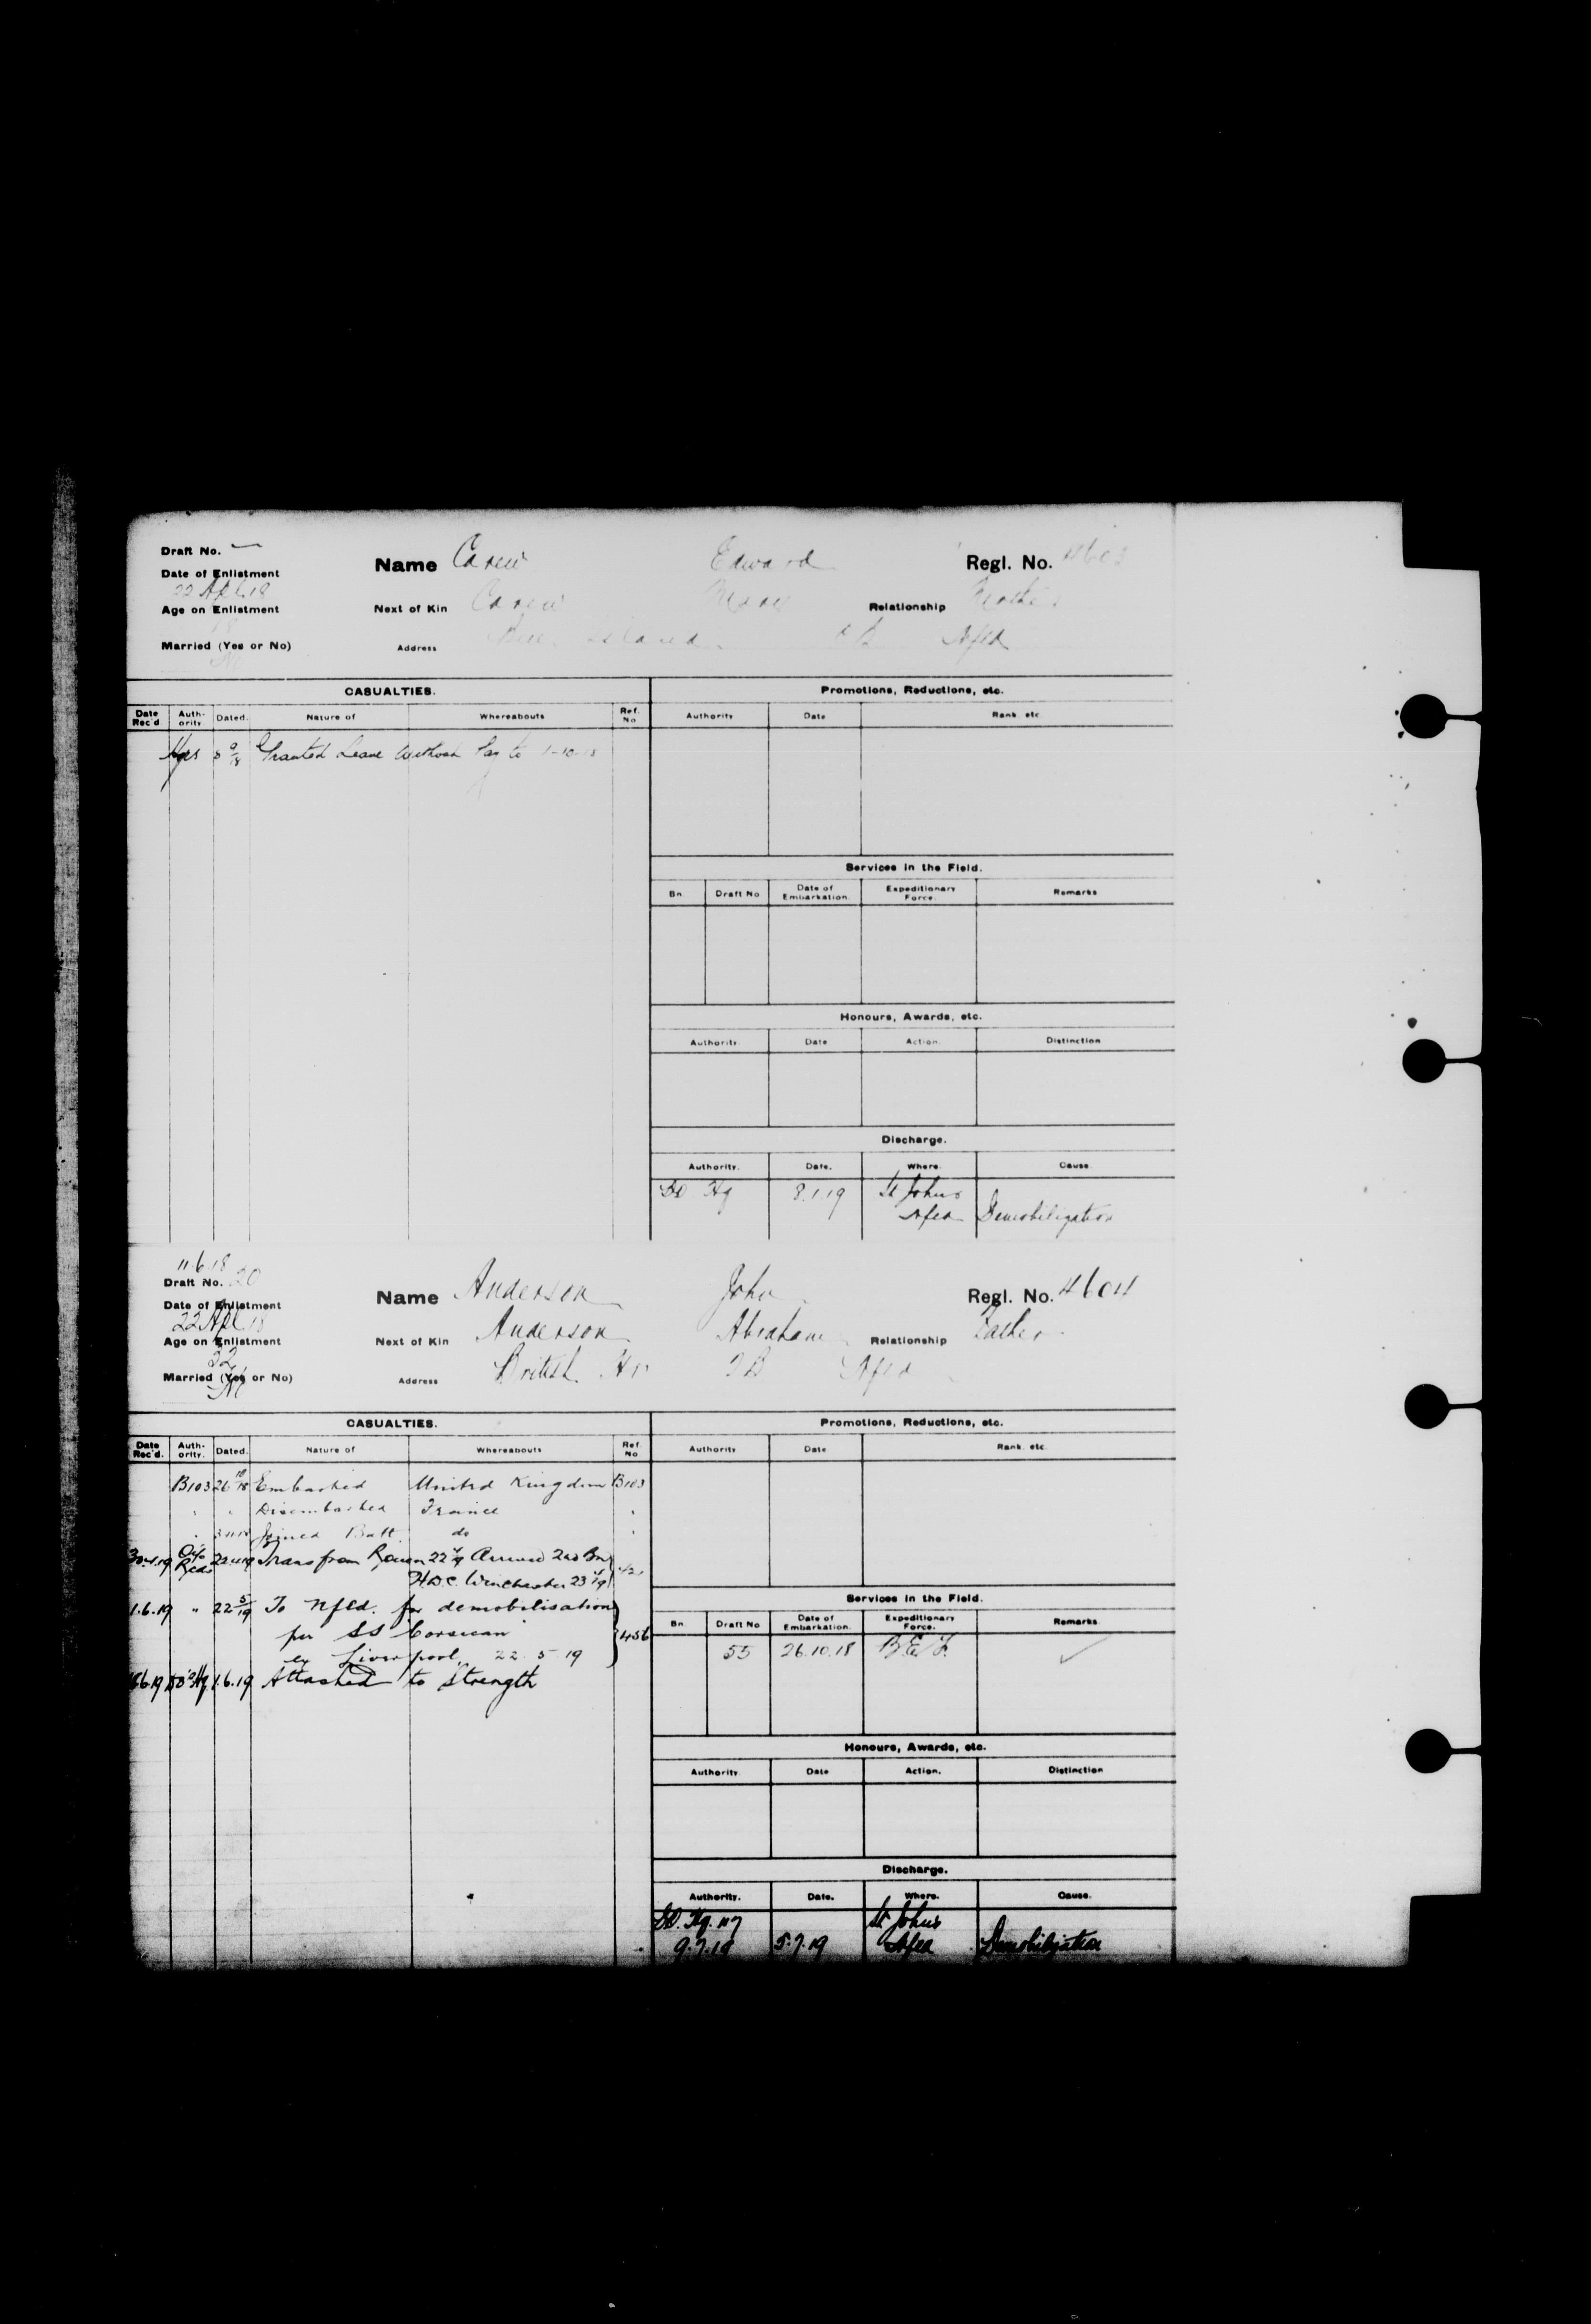 Draft No. —
Name Carew Edward Regl. No. 4603
Date of Enlistment
22 Apl. 18
Age on Enlistment Next of Kin Carew Mary Relationship Mother
Married (Yes or No) Address Bell Island CB Nfld
No
CASUALTIES. Promotions, Reductions, etc.
Date Rec'd Auth-ority Dated. Nature of Whereabouts Ref. No Authority Date Rank. etc
Granted Leave without Pay to 1-10-18
Services in the Field.
Bn Draft No Date of Embarkation. Expeditionary Force. Remarks
Honours, Awards, etc.
Authority. Date Action. Distinction
Discharge.
Authority. Date. Where. Cause.
Hq 8.1.19 St Johns Nfld Demobilization
11.6.18
Draft No. 20
Name Anderson John Regl. No. 4604
Date of Enlistment
22 Apl. 18
Age on Enlistment Next of Kin Anderson Abraham Relationship Father
22
Married (Yes or No) Address British Hr TB Nfld
No
CASUALTIES. Promotions, Reductions, etc.
Date Rec'd. Auth-ority. Dated. Nature of Whereabouts Ref. No Authority Date Rank. etc.
B103 26 10/18 Embarked United Kingdom B103
" " Disembarked France "
" 3.11.18 Joined Batt do "
30.4.19 O i/c Recds 22.4.19 Trans from Rouen 22 4/19 Arrived 2nd Bn
H.D.C. Winchester 23 4/19
1.6.19 " 22 5/19 To Nfld. for demobilisation
per SS Corsican 456
ex Liverpool, 22-5-19
Hq 1.6.19 Attached to Strength
Services in the Field.
Bn Draft No Date of Embarkation. Expeditionary Force. Remarks.
55 26.10.18 B.E.F. ✓
Honours, Awards, etc.
Authority. Date Action. Distinction
Discharge.
Authority. Date. Where. Cause.
Hq. St Johns
9.7.19 5.7.19 Nfld Demobilization